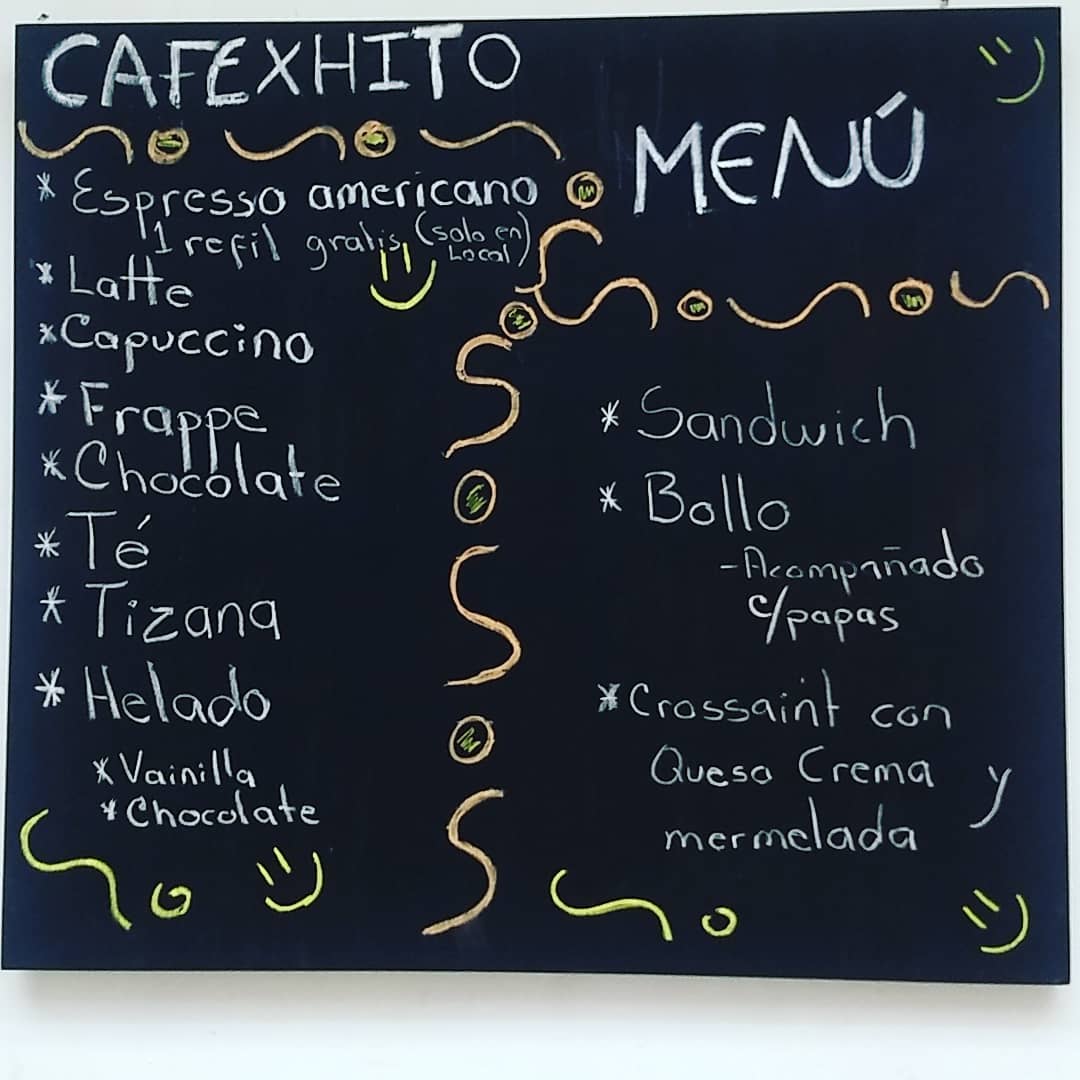 CAFEXHITO
* Espresso americano
1 refil gratis (solo en Local)
* Latte
* Capuccino
* Frappe
* Chocolate
* Té
* Tizana
* Helado
* Vainilla
* Chocolate
MENÚ
* Sandwich
* Bollo
- Acompañado
c/papas
* Crossaint con
Queso Crema y
mermelada